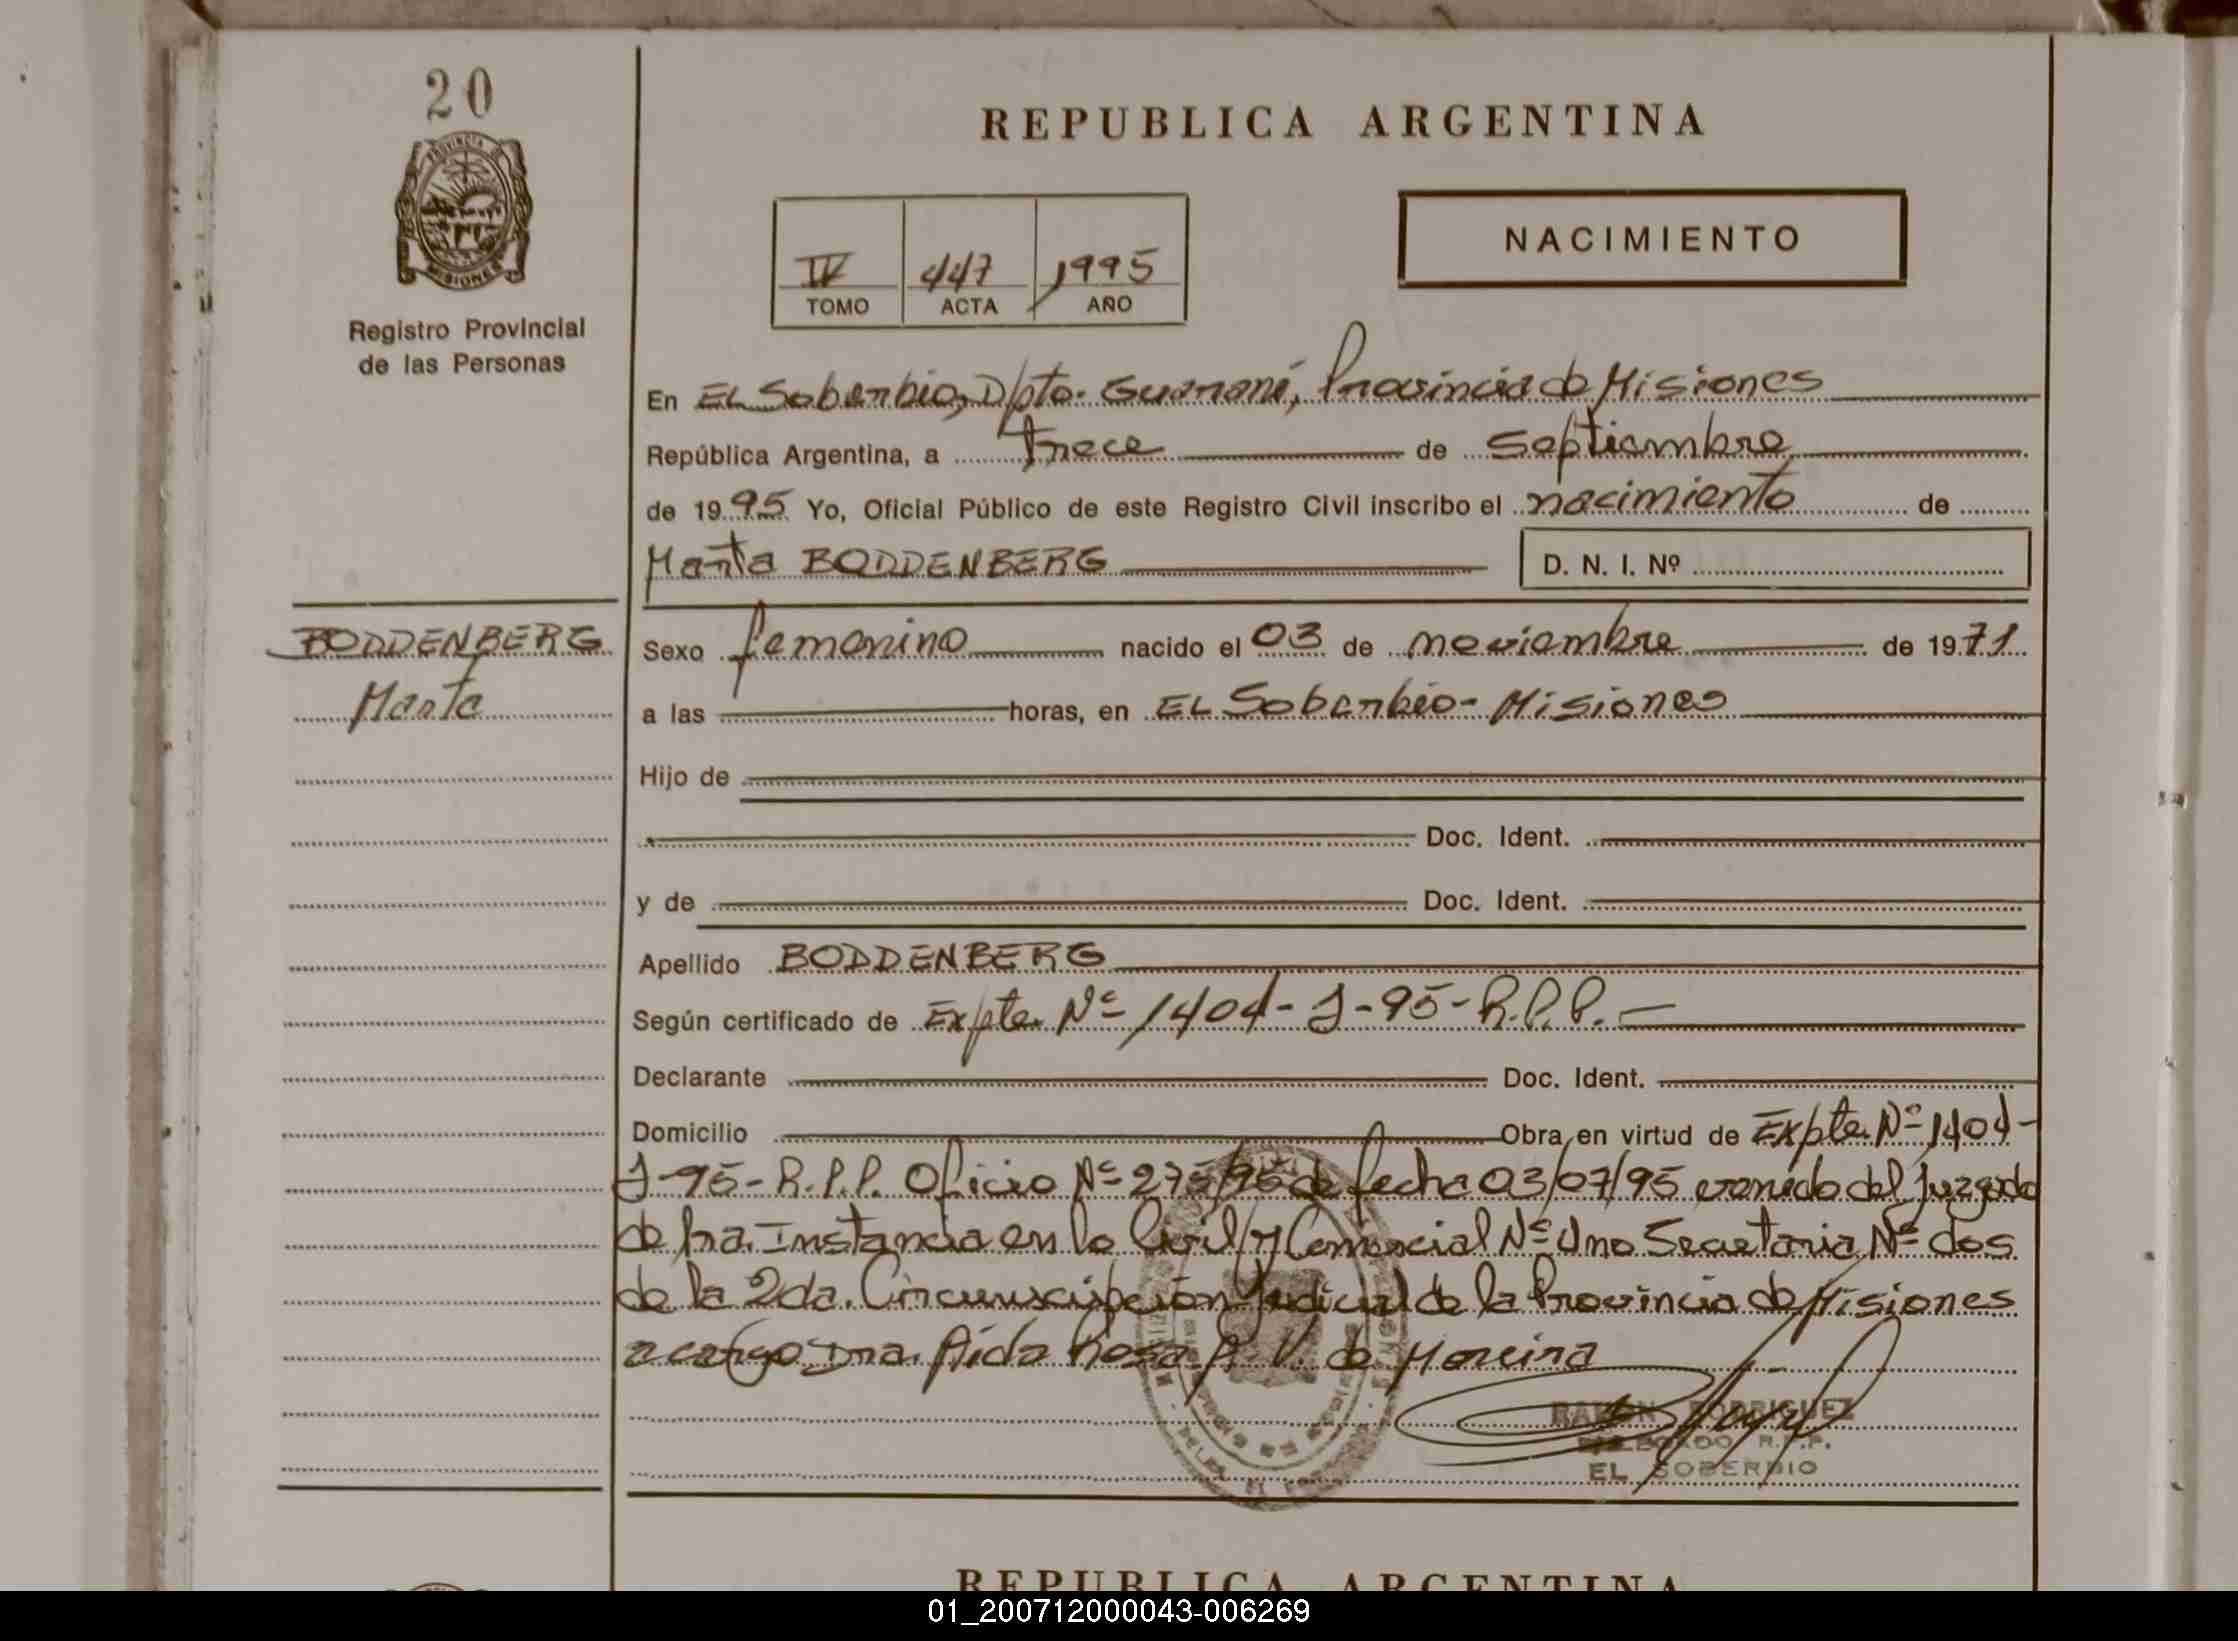 20
PROVINCIA DE
MISIONES
Registro Provincial
de las Personas
REPUBLICA ARGENTINA
IV 447 1995
TOMO ACTA AÑO
NACIMIENTO
En EL Soberbio, Dpto. Guaraní, Provincia de Misiones
República Argentina, a trece de septiembre
de 1995 Yo, Oficial Público de este Registro Civil inscribo el nacimiento de
Marta BODDENBERG D. N. I. Nº
BODDENBERG
Marta
Sexo femenino nacido el 03 de noviembre de 1971
a las horas, en EL Soberbio - Misiones
Hijo de
Doc. Ident.
y de Doc. Ident.
Apellido BODDENBERG
Según certificado de Expte. Nº 1404-J-95-R.P.P.-
Declarante Doc. Ident.
Domicilio Obra en virtud de Expte. Nº 1404-
J-95-R.P.P. Oficio Nº 275/95 de fecha 03/07/95 venido del Juzgado
de 1ra. Instancia en lo Civil y Comercial Nº Uno Secretaria Nº dos
de la 2da. Circunscripción Judicial de la Provincia de Misiones
a cargo Dra. Aida Rosa R. V. de Moreira
RAMON RODRIGUEZ
DELEGADO R.P.P.
EL SOBERBIO
REPUBLICA ARGENTINA
01_200712000043-006269